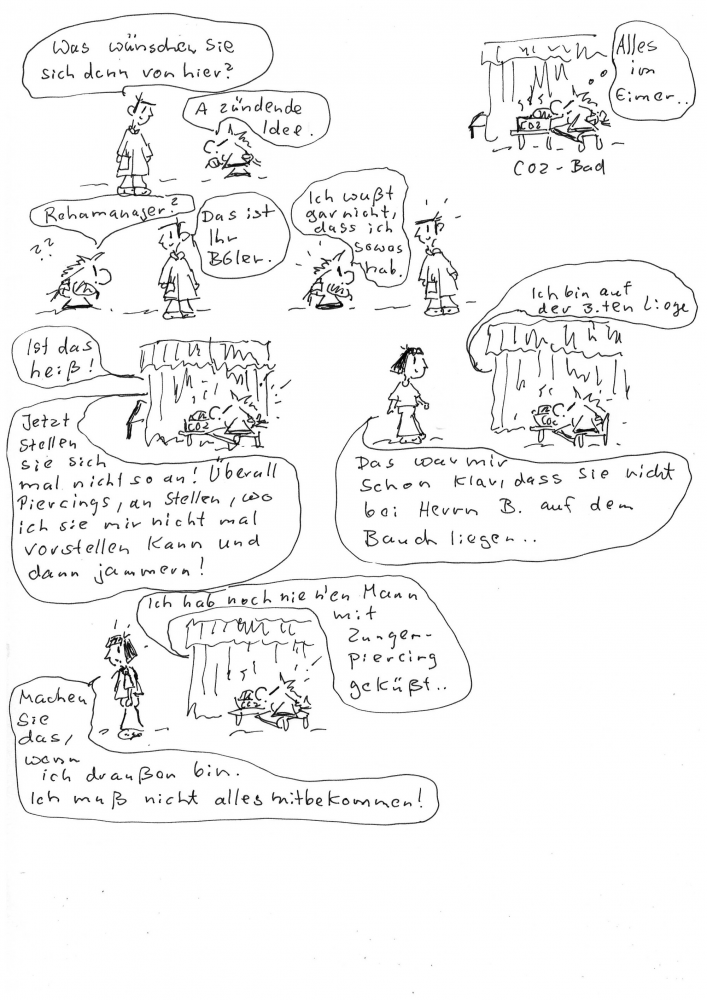 Was wünschen Sie
sich denn von hier?
A zündende
Idee.
Alles
im
Eimer..
CO2
CO2-Bad
Rehamanager?
??
Das ist
Ihr
BGler.
Ich wußt
gar nicht,
dass ich
sowas
hab.
Ist das
heiß!
CO2
Jetzt
stellen
sie sich
mal nicht so an! Überall
Piercings, an Stellen, wo
ich sie mir nicht mal
vorstellen kann und
dann jammern!
Ich bin auf
der 3.ten Liege
CO2
Das war mir
schon klar, dass sie nicht
bei Herrn B. auf dem
Bauch liegen..
Ich hab noch nie n'en Mann
mit
Zungen-
piercing
geküßt..
CO2
Machen
Sie
das,
wenn
ich draußen bin.
Ich muß nicht alles mitbekommen!